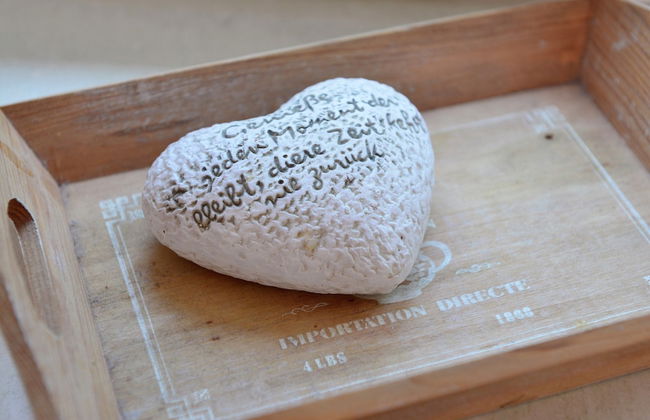 Genieße
jeden Moment, der
bleibt, diese Zeit kehrt
nie zurück
IMPORTATION DIRECTE
4 LBS
1868